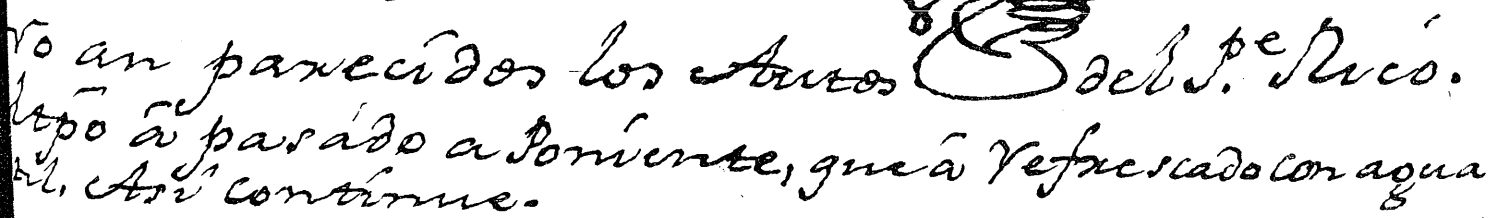 ro an parecidos los Autos del P.e Rico.
l tpō â pasádo a Poniente, que â refrescado con agua
al. Así continue.